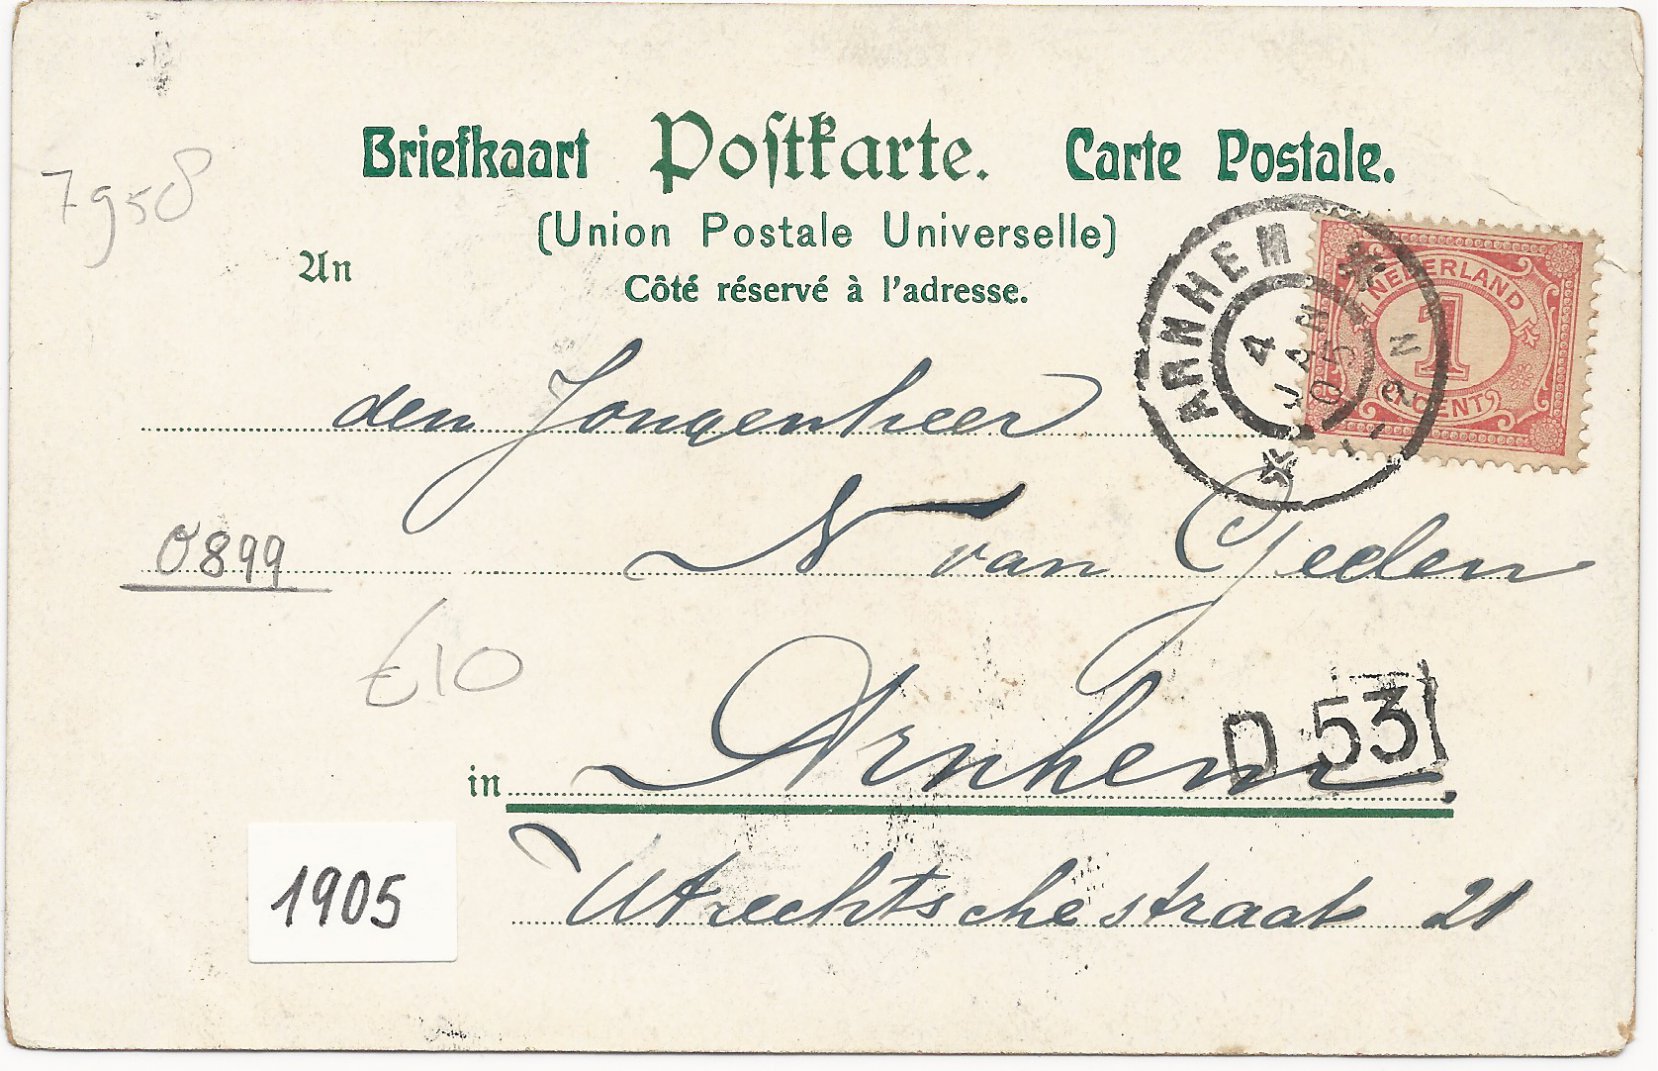 Briefkaart Postkarte. Carte Postale.
(Union Postale Universelle)
Côté réservé à l'adresse.
7958
An
ARNHEM
4 JAN 05
1-2 N
NEDERLAND
1
CENT
den Jongenheer
N van Gelen
0899
€10
in Arnhem
D 53
Utrechtschestraat 21
1905